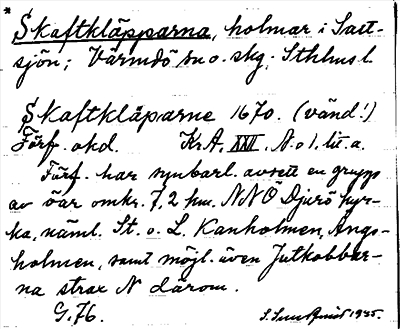 Skaftkläpparna, holmar i Salt-
sjön; Värmdö sn o. skg. Sthlms l.
Skaftkläparne 1670. (vänd!)
Förf. okd. Kr.A. XXII. A. o 1. lit. a.
Förf. har synbarl. avsett en grupp
av öar omkr. 7,2 km. NNÖ Djurö kyr-
ka, näml. St. o. L. Kanholmen, Ängs-
holmen, samt möjl. även Jutkobbar-
na strax N därom.
G. 76. 1935.